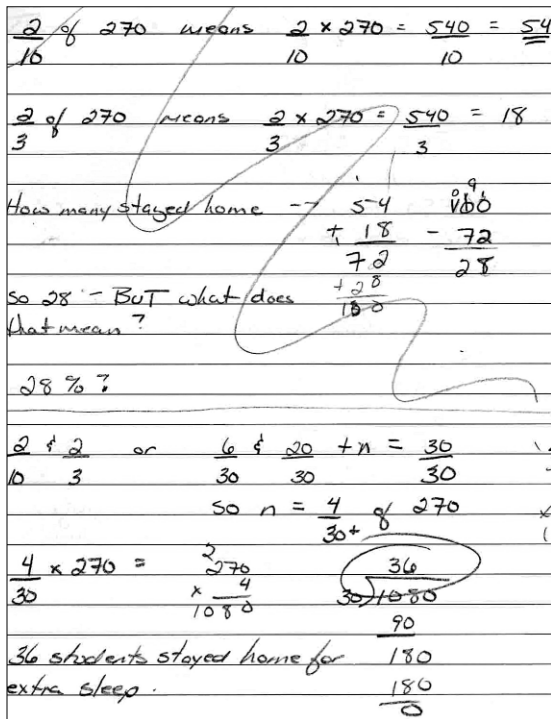 2/10 of 270 means 2/10 × 270 = 540/10 = 54
2/3 of 270 means 2/3 × 270 = 540/3 = 18
How many stayed home → 54 100
+ 18 - 72
72 28
+ 28
100
so 28 - BUT what does
that mean?
28 % ?
2/10 & 2/3 or 6/30 & 20/30 + n = 30/30
so n = 4/30 of 270
4/30 × 270 = 270 36
× 4 30)1080
1080 90
36 students stayed home for 180
extra sleep. 180
0